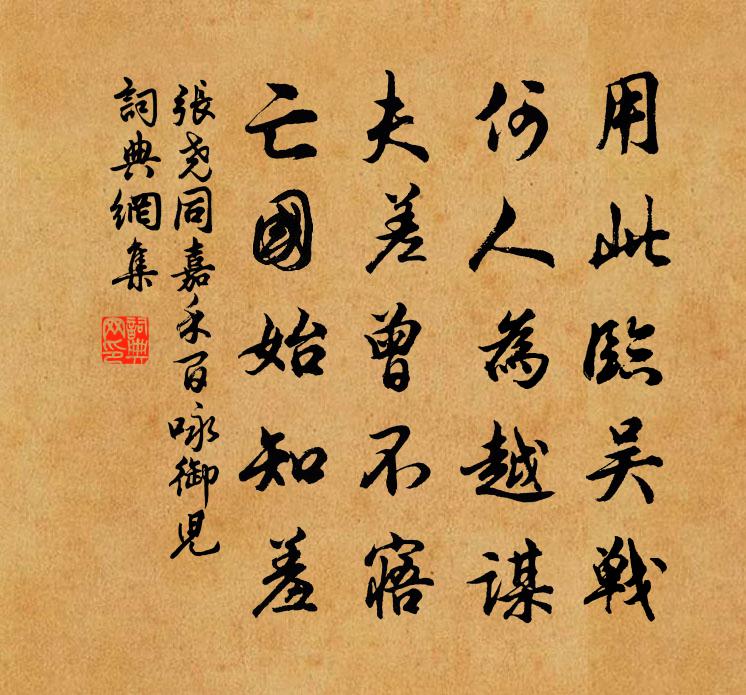 用此臨吴戰
何人為越謀
夫差曾不寤
亡國始知羞
張尭同嘉禾百咏御児
詞典網集
詞典
网印